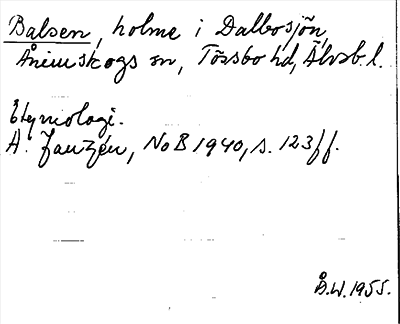 Balsen, holme i Dalbosjön,
Ånimskogs sn, Tössbo hd, Älvsb. l.
Etymologi.
A. Janzén, NoB 1940, s. 123 ff.
Å.W. 1955.